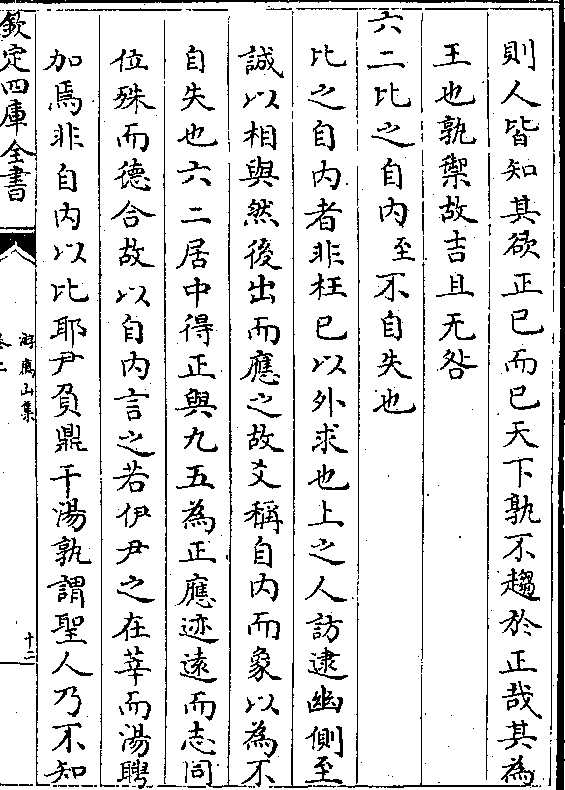 則人皆知其欲正已而已天下孰不趨於正哉其為
王也孰禦故吉且无咎
六二比之自内至不自失也
比之自内者非枉已以外求也上之人訪逮幽側至
誠以相與然後出而應之故爻稱自内而象以為不
自失也六二居中得正與九五為正應迹遠而志同
位殊而德合故以自内言之若伊尹之在莘而湯聘
加焉非自内以比耶尹負鼎干湯孰謂聖人乃不知
欽定四庫全書
游廌山集
卷二
十二